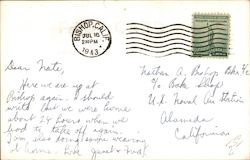 BISHOP, CALIF.
JUL 16
2 30 PM
1943
Dear Nate,
Here we are up at
Bishop again. I should
write that we were home
about 24 hours when we
had to take off again.
I'm also being
it home. Love Janet &
Nathan A. Bishop
c/o Bake Shop
U.S. Naval Air Station
Alameda
California